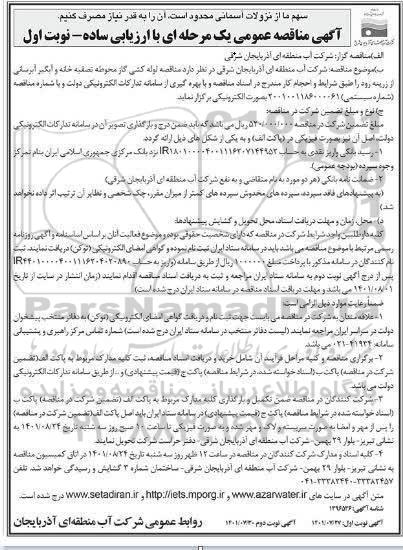 سهم ما از نزولات آسمانی محدود است، آن را به قدر نیاز مصرف کنیم.
آگهی مناقصه عمومی یک مرحله ای با ارزیابی ساده – نوبت اول
الف) مناقصه گزار: شرکت آب منطقه ای آذربایجان شرقی
ب) موضوع مناقصه: شرکت آب منطقه ای آذربایجان شرقی در نظر دارد مناقصه لوله کشی گاز محوطه تصفیه خانه و آبگیر آبرسانی
از زرینه رود را طبق شرایط و احجام کار مندرج در اسناد مناقصه و با بهره گیری از سامانه تدارکات الکترونیکی دولت و با شماره مناقصه
(شماره سیستمی) ۲۰۰۱۰۰۱۱۸۶۰۰۰۰۶۱ بصورت الکترونیکی برگزار نماید.
ج) نوع و مبلغ تضمین شرکت در مناقصه:
مبلغ تضمین شرکت در مناقصه ۵۳۰/۰۰۰/۰۰۰ ریال می باشد که باید ضمن درج و بارگذاری تصویر آن در سامانه تدارکات الکترونیکی
دولت، اصل آن نیز بصورت فیزیکی در (پاکت الف) و به یکی از شکل های ذیل ارائه گردد.
۱- رسید بانکی واریز نقدی به حساب نزد بانک مرکزی جمهوری اسلامی ایران بنام تمرکز
وجوه سپرده (بودجه عمومی).
۲- ضمانت نامه بانکی (هر دو مورد به نام متقاضی و به نفع شرکت آب منطقه ای آذربایجان شرقی)
(به پیشنهادهای فاقد سپرده، سپرده های مخدوش سپرده های کمتر از میزان مقرر، چک شخصی و نظایر آن ترتیب اثر داده نخواهد
شد.)
د) محل، زمان و مهلت دریافت اسناد، محل تحویل و گشایش پیشنهادها:
کلیه داوطلبین واجد شرایط شرکت در مناقصه که دارای شخصیت حقوقی بوده و موضوع فعالیت آنان بر اساس اساسنامه و آگهی روزنامه
رسمی مرتبط با موضوع مناقصه می باشد باید در سامانه ستاد ایران ثبت نام نموده و گواهی امضای الکترونیکی (توکن) دریافت نمایند. ثبت
نام کنندگان در سامانه مذکور با پرداخت مبلغ ۱/۰۰۰/۰۰۰ ریال از طریق سامانه (واریز به حساب
پس از درج آگهی نوبت دوم به سامانه ستاد ایران مراجعه و ثبت به دریافت اسناد مناقصه اقدام نمایند (زمان انتشار در سایت از تاریخ
۱۴۰۱/۰۸/۰۱ می باشد و مهلت دریافت اسناد مناقصه در سامانه ستاد ایران درج شده است)
ضمناً رعایت موارد ذیل الزامی است:
۱- علاقه مندان به شرکت در مناقصه می بایست جهت ثبت نام و دریافت گواهی امضای الکترونیکی (توکن) به دفاتر منتخب پیشخوان
دولت در سراسر ایران مراجعه نمایند. (لیست دفاتر منتخب در سامانه ستاد ایران درج شده است) شماره تماس مرکز راهبری و پشتیبانی
سامانه ۴۱۹۳۴-۰۲۱ می باشد.
۲- برگزاری مناقصه و کلیه مراحل فرآیند آن شامل خرید و دریافت اسناد مناقصه، ثبت کلیه مدارک مربوط به پاکت الف (تضمین
شرکت در مناقصه) پاکت ب (اسناد خواسته شده، در شرایط مناقصه) پاکت ج (قیمت پیشنهادی) و... از طریق سامانه تدارکات الکترونیکی
دولت می باشد.
۳- شرکت کنندگان در مناقصه ضمن تکمیل و بار گذاری کلیه مدارک مربوط به پاکت الف (تضمین شرکت در مناقصه) پاکت ب
(اسناد خواسته شده در شرایط مناقصه) پاکت ج (قیمت پیشنهادی) در سامانه ستاد ایران باید اصل پاکت الف (تضمین شرکت در مناقصه)
را پس از مهر و امضا به صورت سربسته و لاک و مهر شده و به صورت فیزیکی تا ساعت ۱۰ صبح روز سه شنبه تاریخ ۱۴۰۱/۰۸/۲۴ به
نشانی تبریز- بلوار ۲۹ بهمن- شرکت آب منطقه ای آذربایجان شرقی- دفتر حراست شرکت تحویل نمایند.
۴- کلیه اسناد و مدارک شرکت کنندگان در مناقصه در ساعت ۱۲ ظهر روز سه شنبه تاریخ ۱۴۰۱/۰۸/۲۴ در اتاق کمیسیون مناقصه
به نشانی تبریز- بلوار ۲۹ بهمن- شرکت آب منطقه ای آذربایجان شرقی- ساختمان شماره ۳ گشایش و رسیدگی خواهد شد. تلفن
متن آگهی در سایت های www.azarwater.ir و http://iets.mporg.ir و www.setadiran.ir درج شده است.
شناسه آگهی: ۱۳۹۶۵۳۶
آگهی نوبت اول: ۱۴۰۱/۰۷/۲۷ آگهی نوبت دوم: ۱۴۰۱/۰۷/۳۰
روابط عمومی شرکت آب منطقه ای آذربایجان